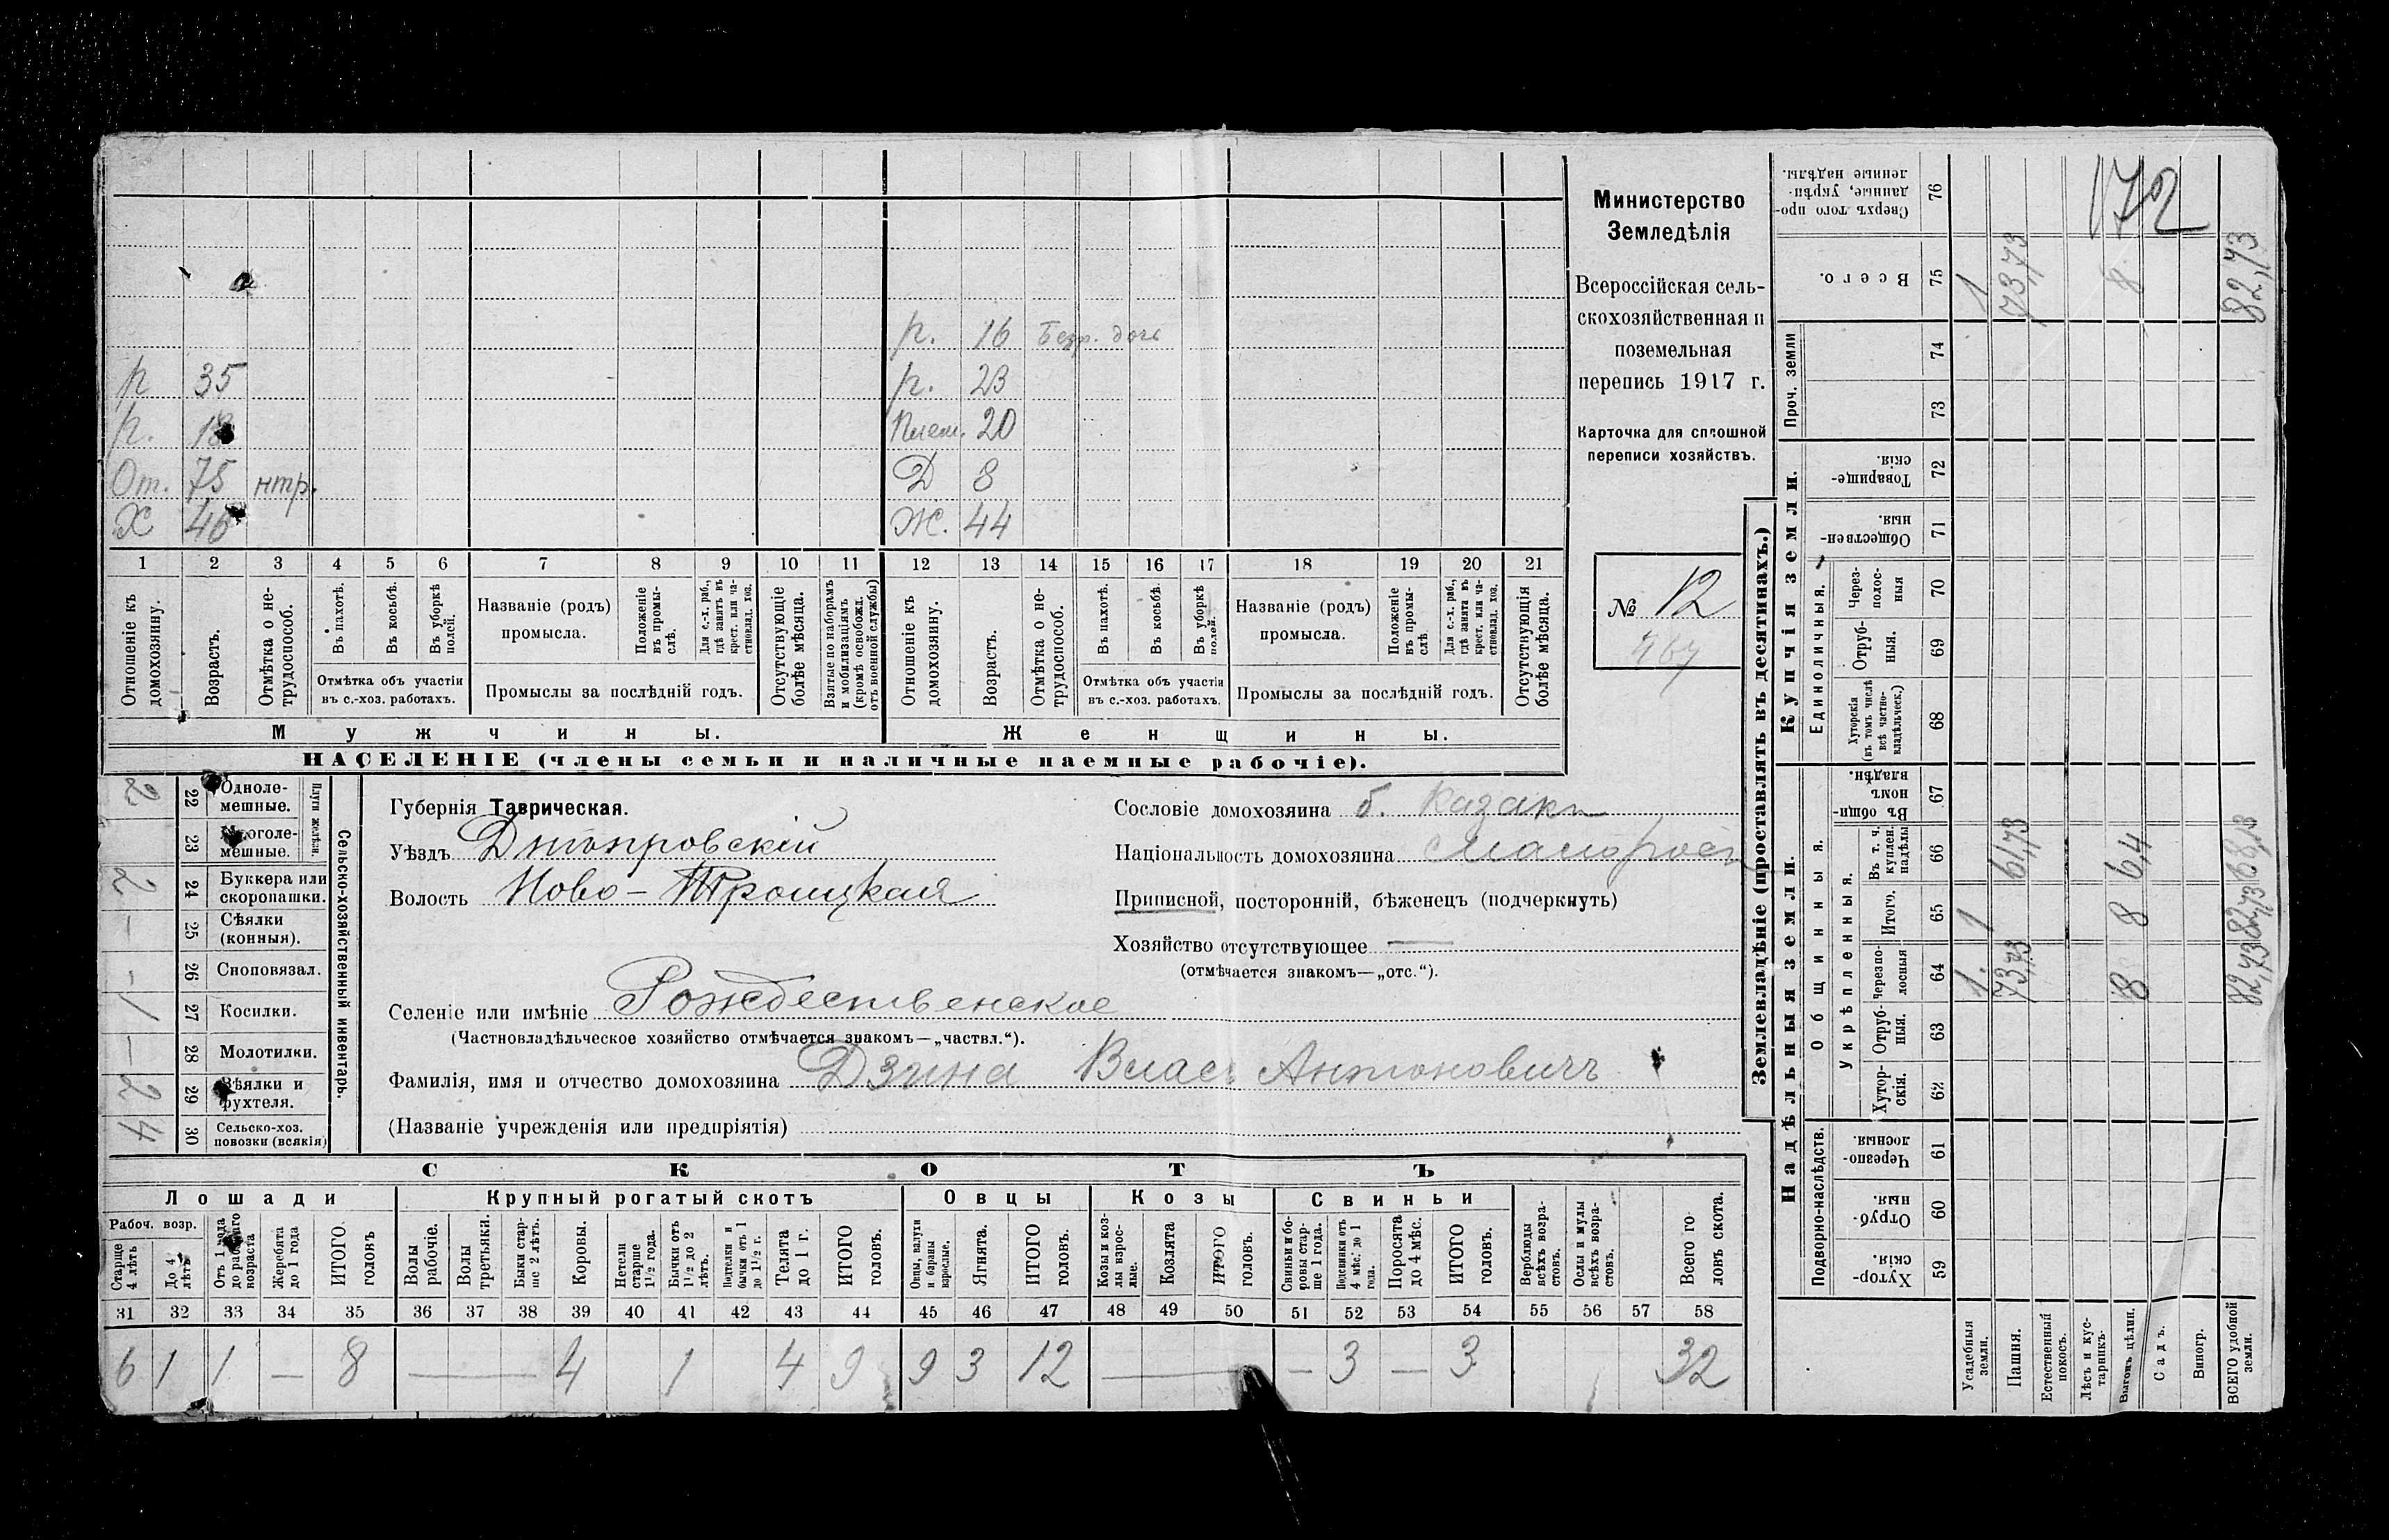 р. 16 Безр. дочь
р 35 р. 23
р. 18 Плем. 20
От. 75 нтр. Д 8
Х 46 Ж. 44
1 2 3 4 5 6 7 8 9 10 11 12 13 14 15 16 17 18 19 20 21
Отношеніе къ домохозяину.
Возрастъ.
Отмѣтка о нетрудоспособ.
Въ пахотѣ.
Въ косьбѣ.
Въ уборкѣ полей.
Отмѣтка объ участіи
въ с.-хоз. работахъ.
Названіе (родъ)
промысла.
Положеніе въ промыслѣ.
Для с.-х. раб., гдѣ занятъ въ крест. или частновлад. хоз.
Промыслы за послѣдній годъ.
Отсутствующіе болѣе мѣсяца.
Взятые по наборамъ и мобилизаціямъ (кромѣ освобожд. отъ военной службы)
Отношеніе къ домохозяину.
Возрастъ.
Отмѣтка о нетрудоспособ.
Въ пахотѣ.
Въ косьбѣ.
Въ уборкѣ полей.
Отмѣтка объ участіи
въ с.-хоз. работахъ.
Названіе (родъ)
промысла.
Положеніе въ промыслѣ.
Для с.-х. раб., гдѣ занята въ крест. или частновлад. хоз.
Промыслы за послѣдній годъ.
Отсутствующія болѣе мѣсяца.
Мужчины. Женщины.
НАСЕЛЕНІЕ (члены семьи и наличные наемные рабочіе).
Министерство
Земледѣлія
Всероссійская сель-
скохозяйственная и
поземельная
перепись 1917 г.
Карточка для сплошной
переписи хозяйствъ.
№ 12
Сельско-хозяйственный инвентарь.
Плуги желѣзн.
2 22 Одноле-
мешные.
23 Многоле-
мешные.
2 24 Буккера или
скоропашки.
– 25 Сѣялки
(конныя).
– 26 Сноповязал.
1 27 Косилки.
– 28 Молотилки.
2 29 Вѣялки и
рухтеля.
4 30 Сельско-хоз.
повозки (всякія)
Губернія Таврическая.
Уѣздъ Днѣпровскій
Волость Ново-Троицкая
Сословіе домохозяина б. казакъ
Національность домохозяина малорос
Приписной, посторонній, бѣженецъ (подчеркнуть)
Хозяйство отсутствующее —
(отмѣчается знакомъ—„отс.“).
Селеніе или имѣніе Рождественское
(Частновладѣльческое хозяйство отмѣчается знакомъ—„частвл.“).
Фамилія, имя и отчество домохозяина Дзина Влас Антоновичъ
(Названіе учрежденія или предпріятія)
СКОТЪ
Лошади Крупный рогатый скотъ Овцы Козы Свиньи
Рабоч. возр.
Старше 4 лѣтъ
До 4 лѣтъ
Отъ 1 года до рабочаго возраста
Жеребята до 1 года
ИТОГО головъ
Волы рабочіе.
Волы третьяки.
Быки старше 2 лѣтъ.
Коровы.
Нетели старше 1½ года.
Бычки отъ 1½ до 2 лѣтъ.
Подтелки и бычки отъ 1 до 1½ г.
Телята до 1 г.
ИТОГО головъ.
Овцы, валухи и бараны взрослые.
Ягнята.
ИТОГО головъ.
Козы и козлы взрослые.
Козлята
ИТОГО головъ.
Свиньи и боровы старше 1 года.
Подсвинки отъ 4 мѣс. до 1 года.
Поросята до 4 мѣс.
ИТОГО головъ.
Верблюды всѣхъ возрастовъ.
Ослы и мулы всѣхъ возрастовъ.
Всего головъ скота.
31 32 33 34 35 36 37 38 39 40 41 42 43 44 45 46 47 48 49 50 51 52 53 54 55 56 57 58
6 1 1 — 8 — 4 1 4 9 9 3 12 — – 3 – 3 32
Землевладѣніе (проставлять въ десятинахъ.)
Надѣльныя земли. Купчія земли. Проч. земли
Подворно-наслѣдств.
Общинныя.
Укрѣпленныя.
Единоличныя.
Хуторскія 59
Отрубныя. 60
Черезполосныя. 61
Хуторскія. 62
Отрубныя. 63
Черезполосныя 64
Итого. 65
Въ т. ч. куплен. надѣлы 66
Въ общинномъ владѣн. 67
Хуторскія (въ томъ числѣ всѣ частновладѣльческ.) 68
Отрубныя. 69
Черезполосныя 70
Общественныя. 71
Товарищескія. 72
73
74
Всего. 75
Сверхъ того проданные, укрѣпленные надѣлы. 76
172
Усадебныя земли. 1. 1 1
Пашня. 73,73 61,73 73,73
Естественный покосъ.
Лѣсъ и кустарникъ.
Выгонъ цѣлин. 8 8 6,4 8
Садъ.
Виногр.
ВСЕГО удобной земли. 82,73 82,73 68,13 82,73